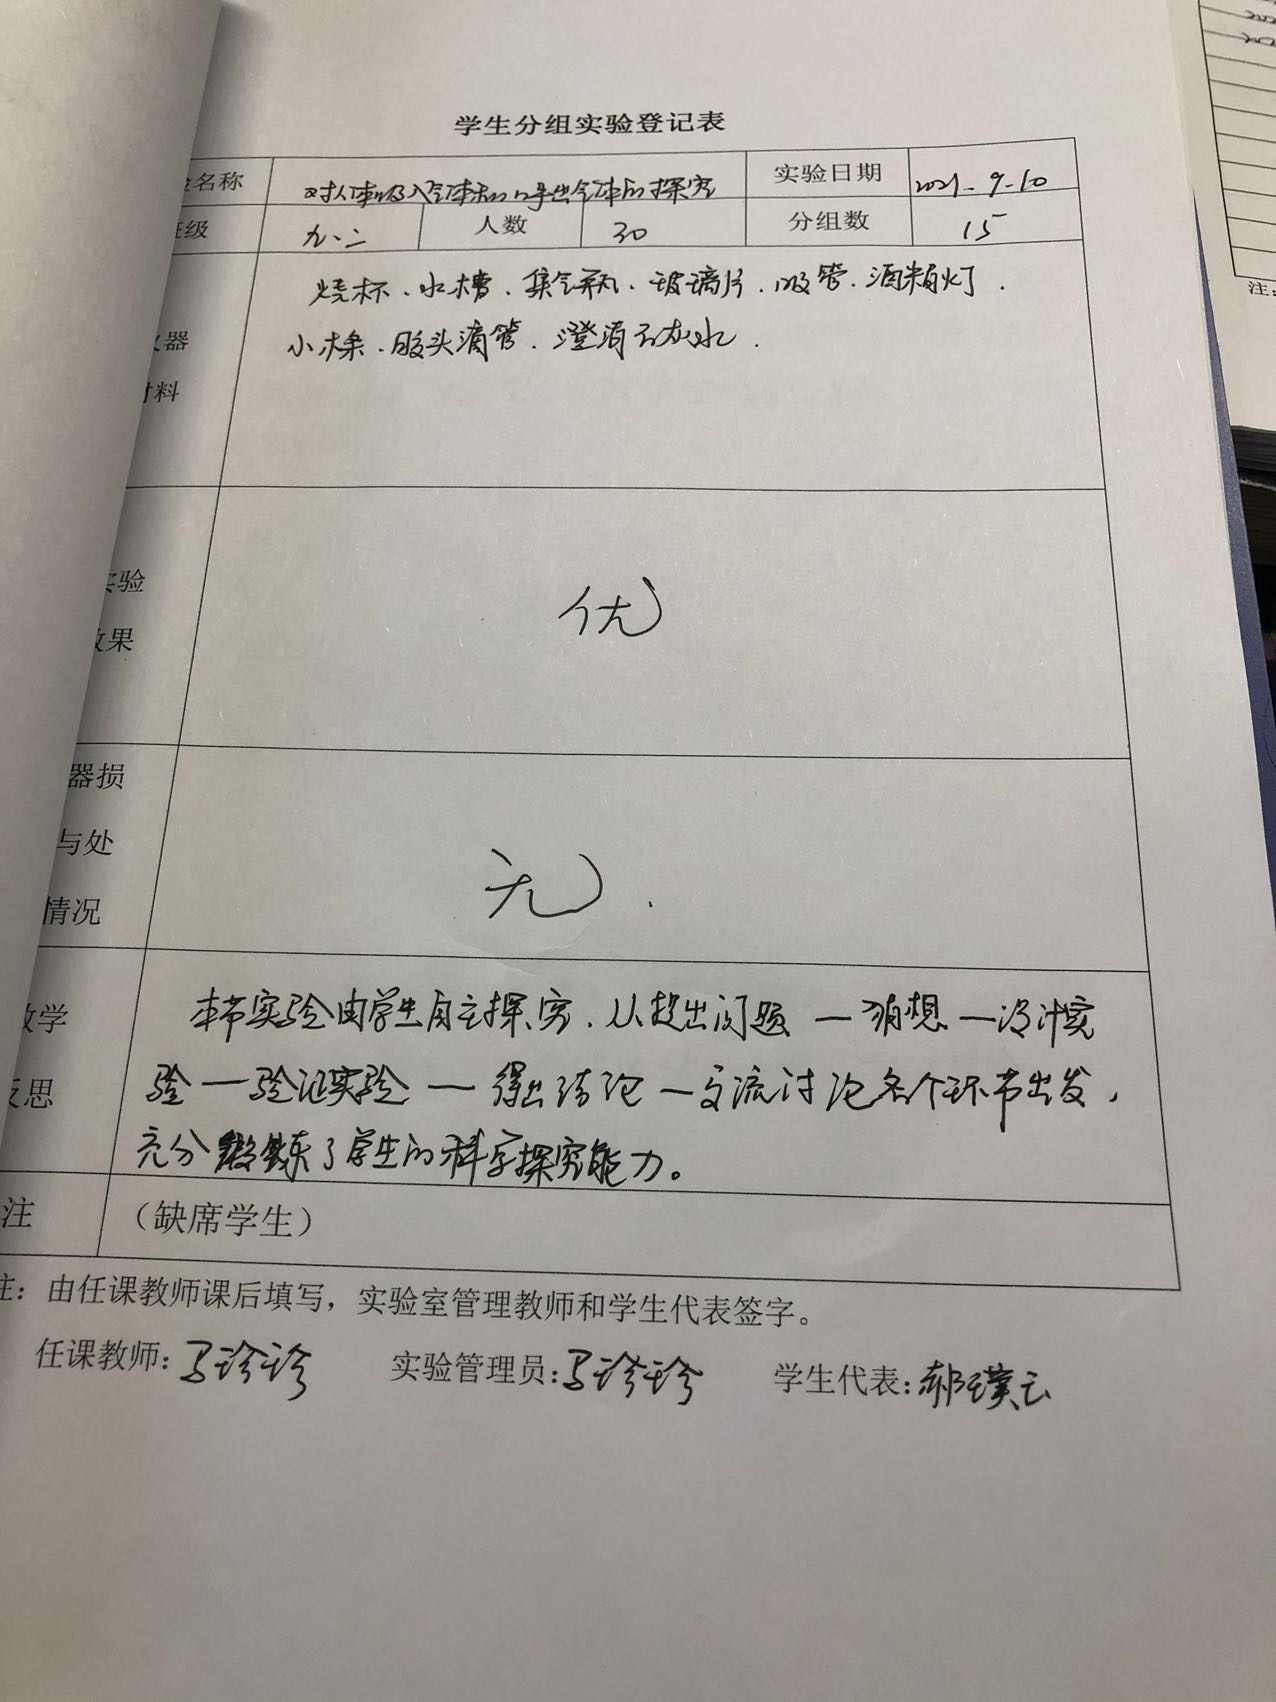 学生分组实验登记表
验名称 对人体吸入气体和呼出气体的探究 实验日期 2021-9-10
班级 九.二 人数 30 分组数 15
烧杯、水槽、集气瓶、玻璃片、吸管、酒精灯、
仪器 小木条、胶头滴管、澄清石灰水.
材料
实验
优
效果
器损
与处
无.
情况
教学 本节实验由学生自主探究、从提出问题—猜想—设计实
反思 验—验证实验—得出结论—交流讨论各个环节出发,
充分锻炼了学生的科学探究能力。
注 (缺席学生)
注: 由任课教师课后填写,实验室管理教师和学生代表签字。
任课教师: 马珍珍 实验管理员: 马珍珍 学生代表: 郝璞云
注: